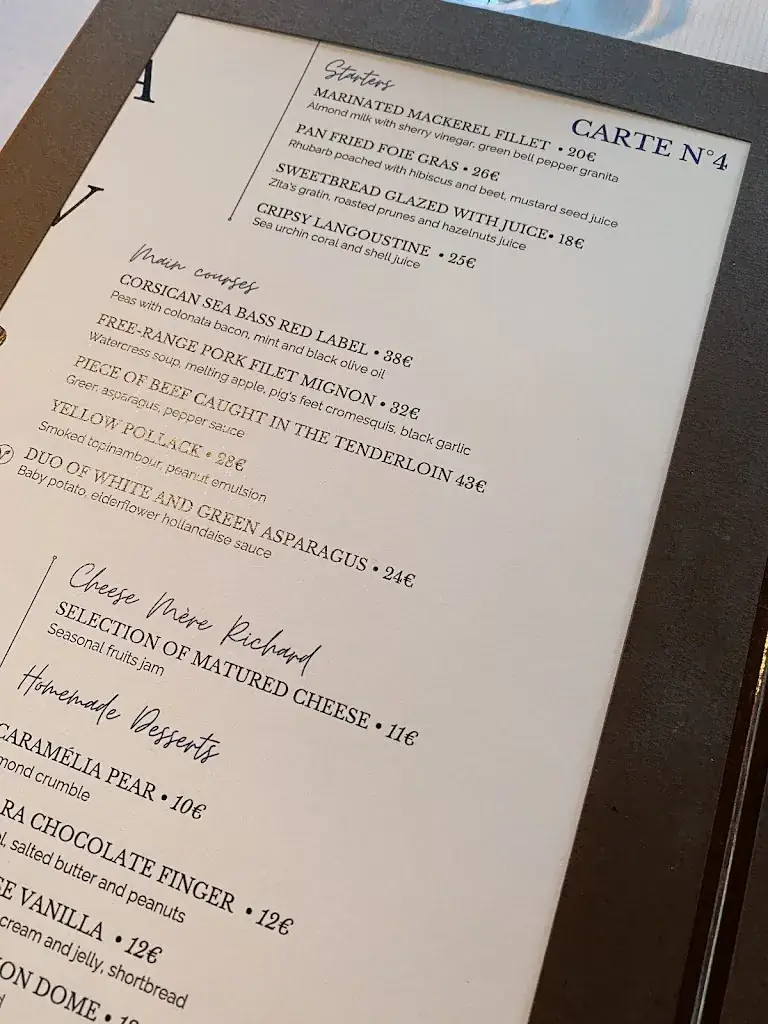 A
V
CARTE N°4
Starters
MARINATED MACKEREL FILLET • 20€
Almond milk with sherry vinegar, green bell pepper granita
PAN FRIED FOIE GRAS • 26€
Rhubarb poached with hibiscus and beet, mustard seed juice
SWEETBREAD GLAZED WITH JUICE• 18€
Zita's gratin, roasted prunes and hazelnuts juice
CRIPSY LANGOUSTINE • 25€
Sea urchin coral and shell juice
Main courses
CORSICAN SEA BASS RED LABEL • 38€
Peas with colonata bacon, mint and black olive oil
FREE-RANGE PORK FILET MIGNON • 32€
Watercress soup, melting apple, pig's feet cromesquis, black garlic
PIECE OF BEEF CAUGHT IN THE TENDERLOIN 43€
Green asparagus, pepper sauce
YELLOW POLLACK • 28€
Smoked topinambour, peanut emulsion
DUO OF WHITE AND GREEN ASPARAGUS • 24€
Baby potato, elderflower hollandaise sauce
Cheese Mère Richard
SELECTION OF MATURED CHEESE • 11€
Seasonal fruits jam
Homemade Desserts
CARAMÉLIA PEAR • 10€
mond crumble
RA CHOCOLATE FINGER • 12€
l, salted butter and peanuts
SE VANILLA • 12€
cream and jelly, shortbread
ON DOME •